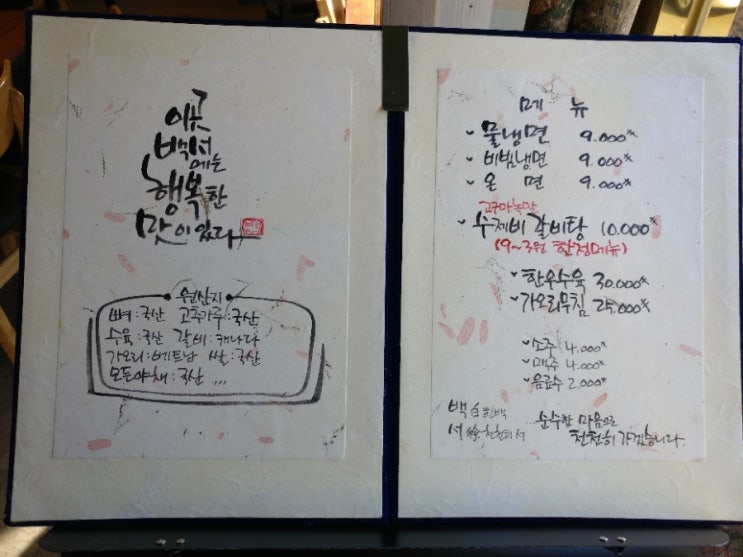 이곳
백서
에는
행복한
맛이 있다
원산지
뼈 : 국산 고춧가루 : 국산
수육 : 국산 갈비 : 캐나다
가오리 : 베트남 쌀 : 국산
모든야채 : 국산 ...
메 뉴
물냉면 9.000
비빔냉면 9.000
온 면 9.000
고구마녹말
수제비 갈비탕 10.000
(9~3월 한정메뉴)
한우수육 30.000
가오리무침 25.000
소주 4.000
맥주 4.000
음료수 2.000
백 白 흰백 ...순수한 마음으로
서 徐 천천히서 천천히 가겠습니다.